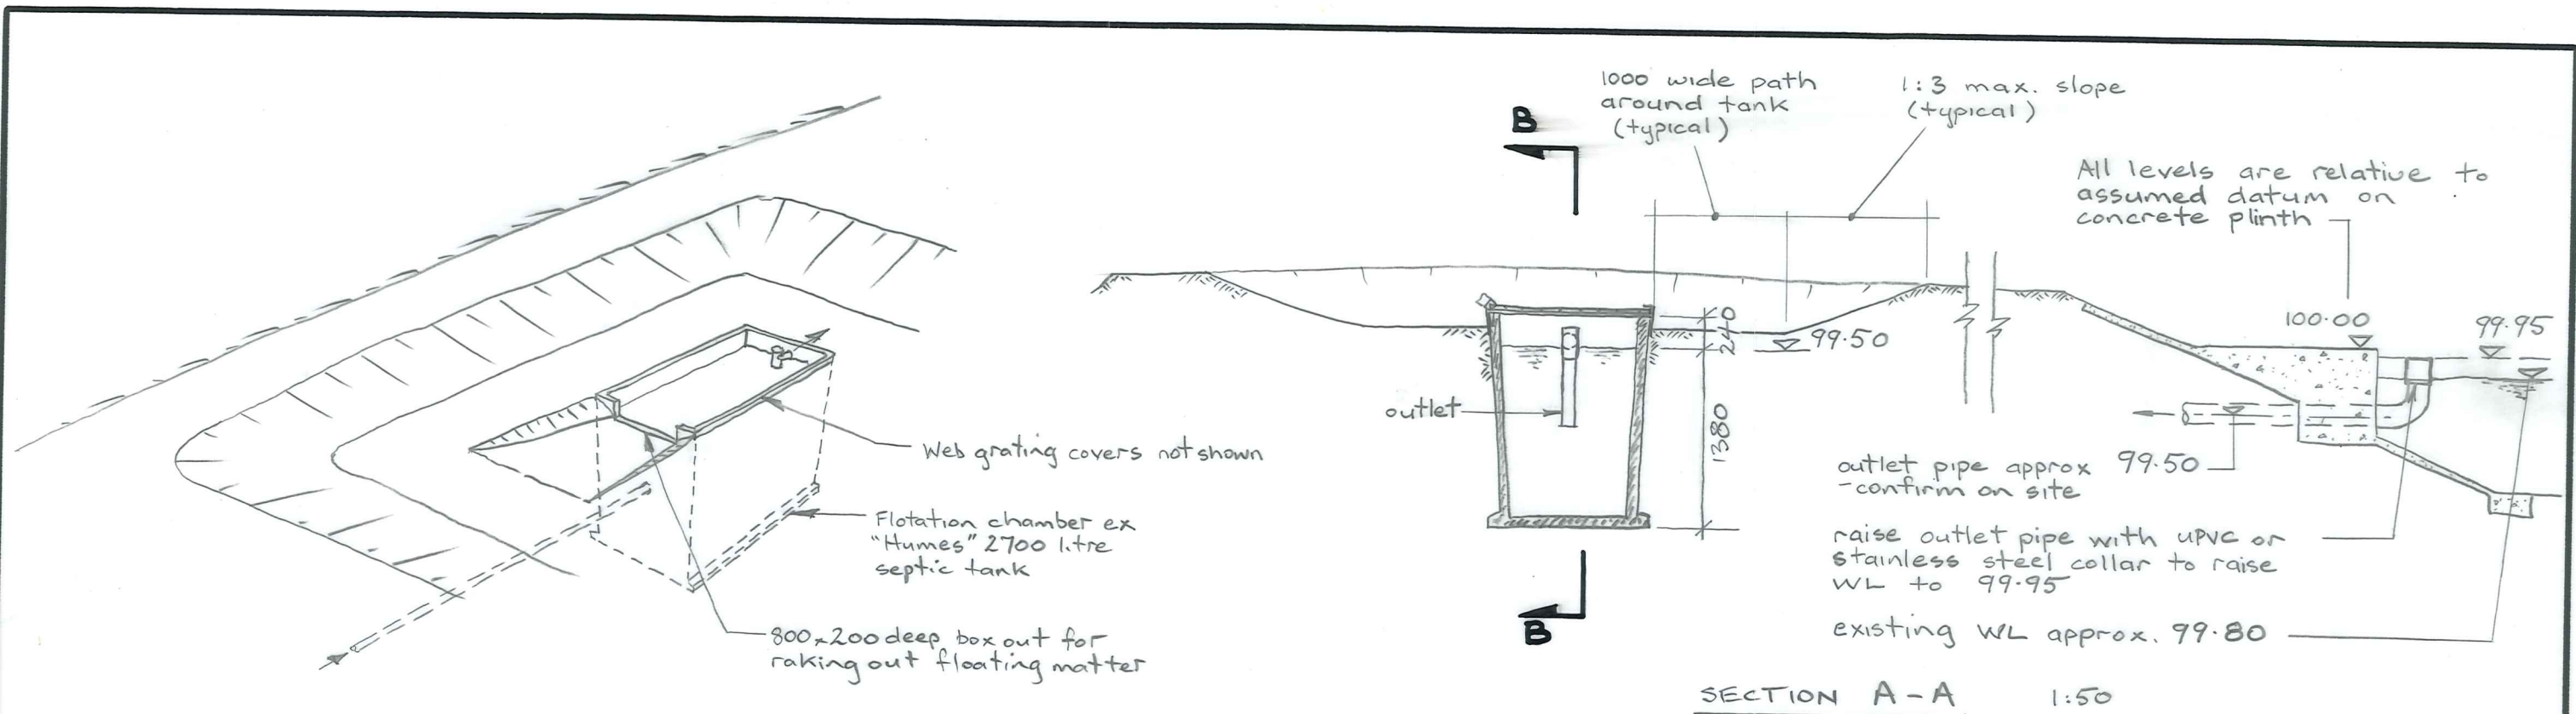 Web grating covers not shown
Flotation chamber ex
"Humes" 2700 litre
septic tank
800x200 deep box out for
raking out floating matter
B
1000 wide path
around tank
(typical)
1:3 max. slope
(typical)
All levels are relative to
assumed datum on
concrete plinth
240
99.50
100.00
99.95
outlet
1380
outlet pipe approx 99.50
-confirm on site
raise outlet pipe with uPVC or
stainless steel collar to raise
WL to 99.95
existing WL approx. 99.80
B
SECTION A-A 1:50